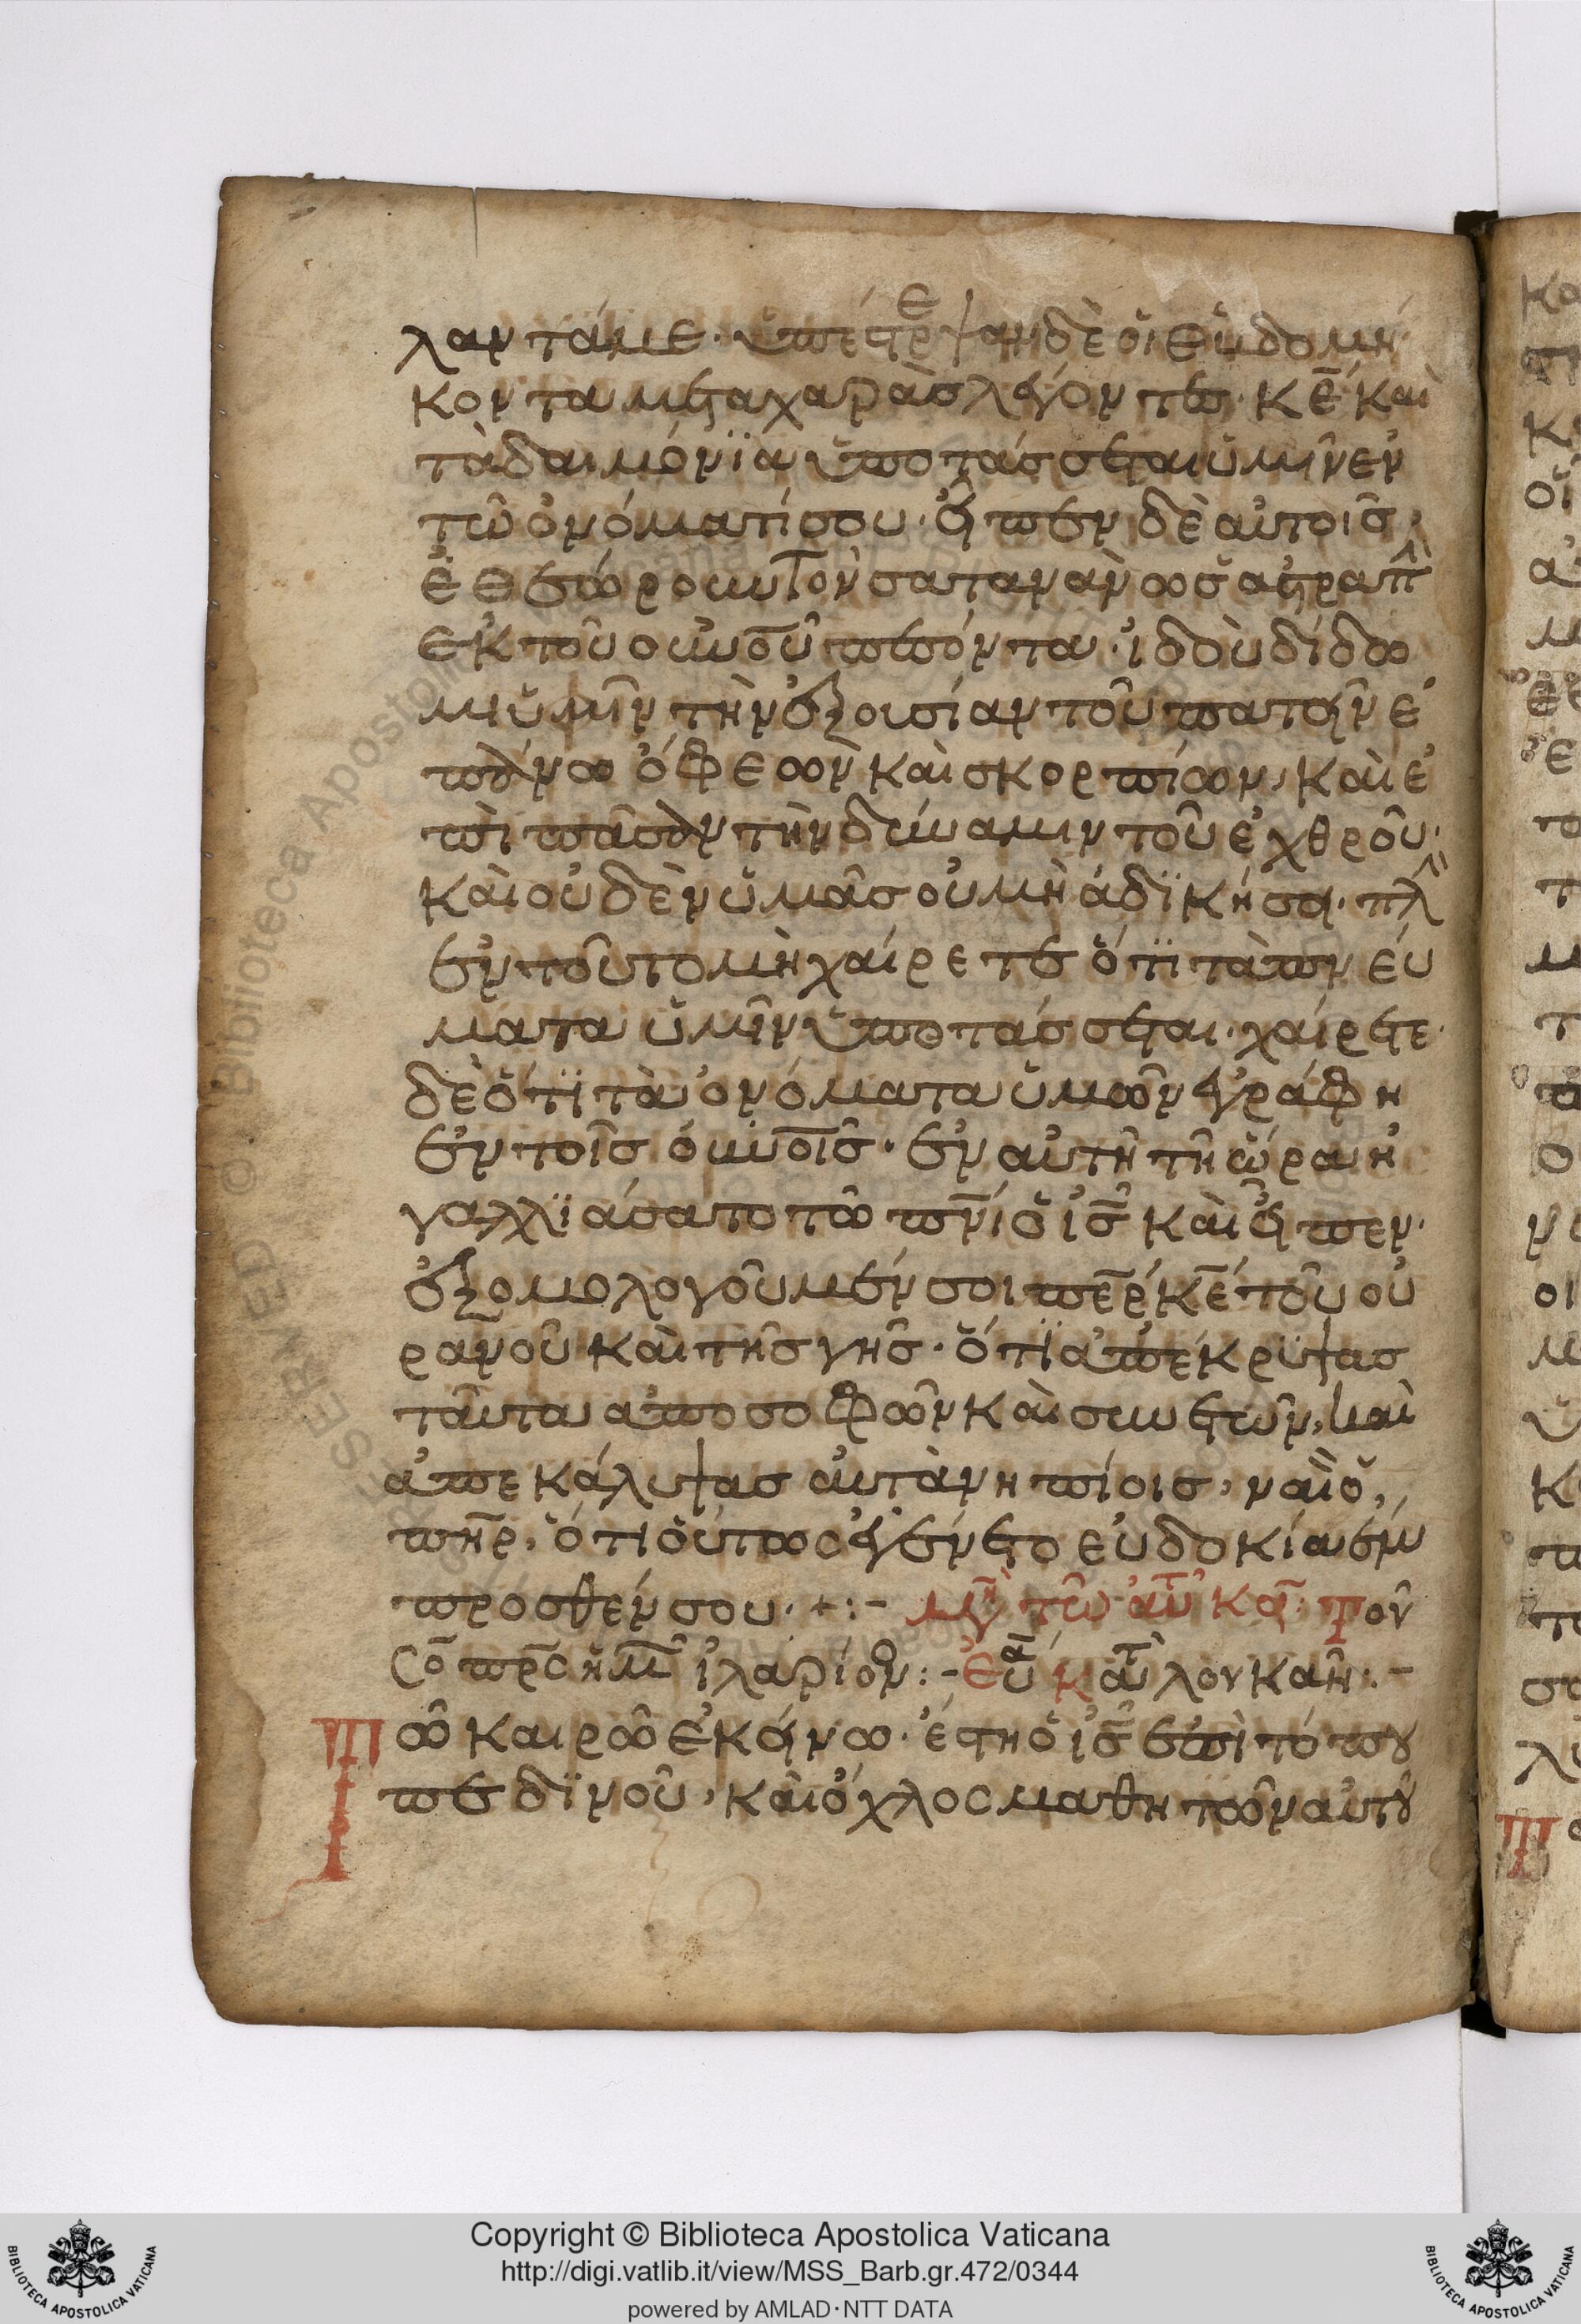 λαντάμε· ὑπέστρεψαν δὲ οἱ ἑβδομή
κοντα μετα χαρὰσ λέγοντεσ· κ̅ε̅ καὶ
τὰ δαιμόνϊα ὑποτάσσεται ὑμῖν ἐν
τῶ ὀνόματί σου· εἶπεν δὲ αὐτοῖσ·
ἐθεώρουν τὸν σατανὰν ὡσ ἀστραπὴ
ἐκ τοῦ ουνοῦ πεσόντα· ἰδοὺ δίδω
μι ὑμῖν τὴν ἐξουσίαν τοῦ πατεῖν ἐ
πάνω ὄφεων καὶ σκορπίων, καὶ ἐ
πὶ πᾶσαν τὴν δύναμιν τοῦ ἐχθροῦ·
καὶ οὐδὲν ὑμᾶσ οὐ μὴ ἀδϊκήσει· πλ
ἐν τοῦτο μὴ χαίρετε ὅτϊ τὰ πνεύ
ματα ὑμῖν ὑποτάσσεται· χαίρετε·
δὲ ὅτϊ τὰ ὀνόματα ὑμῶν ἐγράφη
ἐν τοῖσ ουνοῖσ· ἐν αὐτῆ τῆ ὥρα ἠ
γαλλϊάσατο τῶ πν̅ι ὁ ι̅σ̅ καὶ εἶπεν·
ἐξομολογοῦμέν σοι πε̅ρ κ̅ε̅ τοῦ οὐ
ρανοῦ καὶ τῆσ γῆσ· ὅτϊ ἀπέκρυψασ
ταῦτα απο σοφῶν καὶ συνετῶν, καὶ
ἀπεκάλυψασ αὐτὰ νηπίοισ, ναὶ ὁ,
πη̅ρ, ὅτι οὕτωσ ἐγένετο εὐδοκία ἐμ
προσθέν σου· +:–  μη τῶ αὐτ κα· Τον
Σο πρσ ημ ἱλαρίον :– ευα κατ λουκαν :–
Τῶ καιρῶ ἐκείνω· ἔστη ὁ ι̅σ̅ ἐπὶ τόπου
πεδϊνοῦ, καὶ ὄχλοσ μαθητῶν αὐτοῦ
Copyright © Biblioteca Apostolica Vaticana
http://digi.vatlib.it/view/MSS_Barb.gr.472/0344
powered by AMLAD·NTT DATA